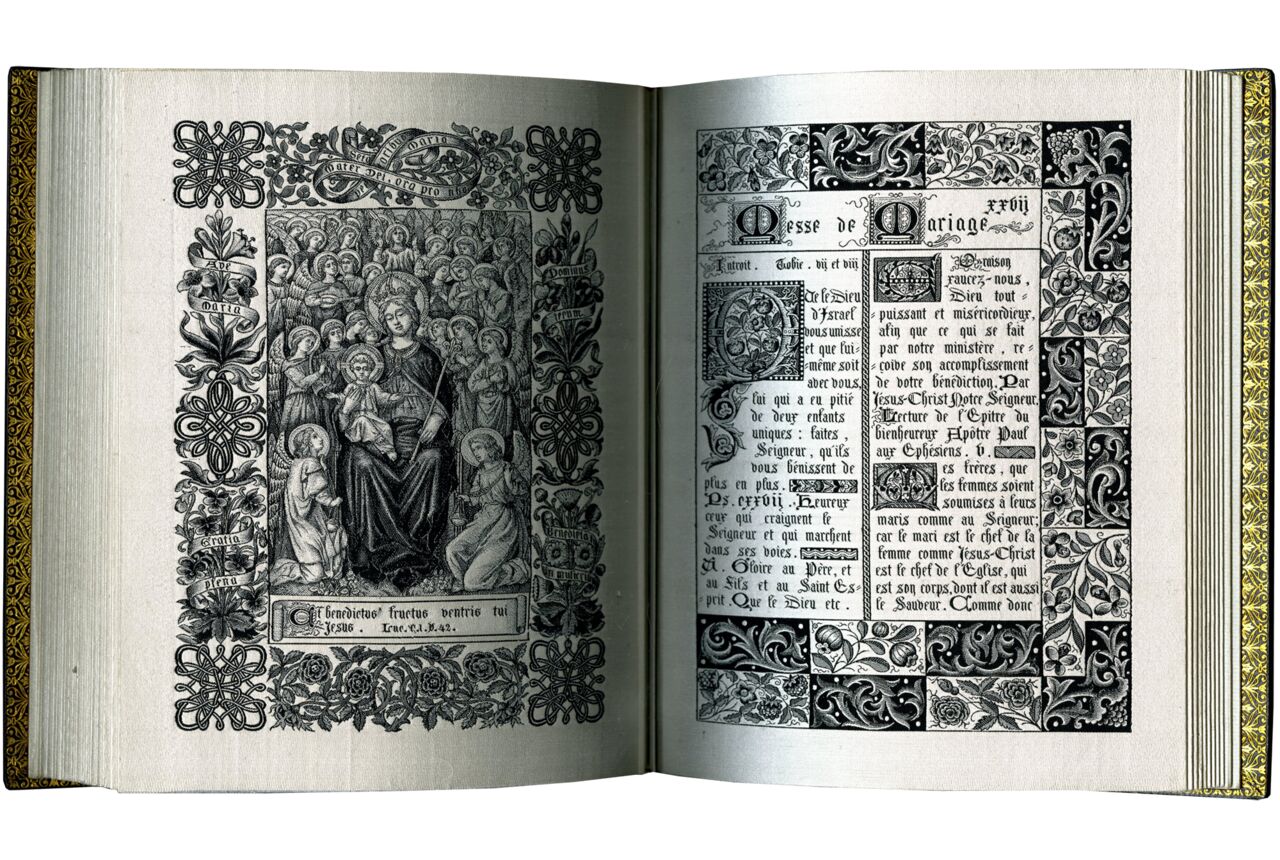 Maria
Mater Dei . ora pro
Ave
Maria
Dominus
tecum
Gratia
plena
Benedicta
in mulieri
Et benedictus fructus ventris tui
Jesus . Luc. C.i. V. 42.
xxvij
Messe de Mariage
Introit . Tobie . vij et viij
Que le Dieu
d'Israel
vous unisse
et que lui-
-même soit
avec vous,
lui qui a eu pitié
de deux enfants
uniques : faites,
Seigneur, qu'ils
vous bénissent de
plus en plus.
Ps. cxxvij . Heureux
ceux qui craignent le
Seigneur et qui marchent
dans ses voies.
V. Gloire au Père, et
au Fils et au Saint Es-
prit. Que le Dieu etc.
Oraison
Exaucez-nous,
Dieu tout-
-puissant et miséricordieux,
afin que ce qui se fait
par notre ministère, re-
-çoive son accomplissement
de votre bénédiction. Par
Jésus-Christ Notre Seigneur.
Lecture de l'Epitre du
bienheureux Apôtre Paul
aux Ephésiens. V.
Mes frères, que
les femmes soient
soumises à leurs
maris comme au Seigneur;
car le mari est le chef de la
femme comme Jésus-Christ
est le chef de l'Eglise, qui
est son corps, dont il est aussi
le Sauveur. Comme donc